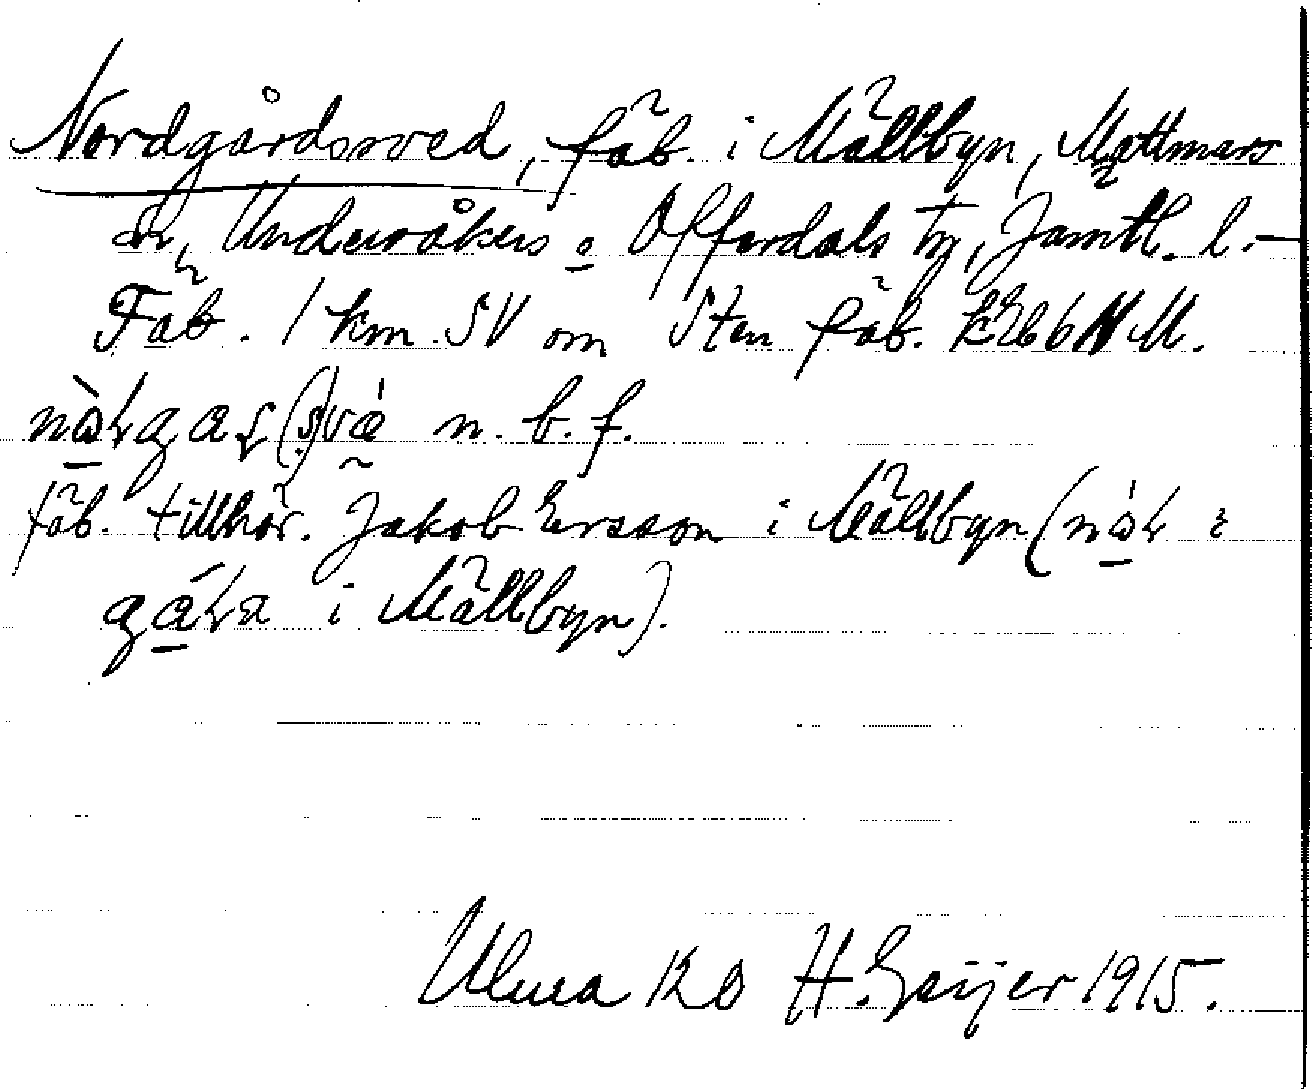 Nordgårdssved, fäb. i Mällbyn, Mattmars
sn, Undersåkers o Offerdals tg, Jämtl. l. –
Fäb. 1 km. SV om Sten fäb. k
n. b. f.
fäb. tillhör. Jakob Ersson i Mällbyn (
i Mällbyn).
H. Geijer 1915.